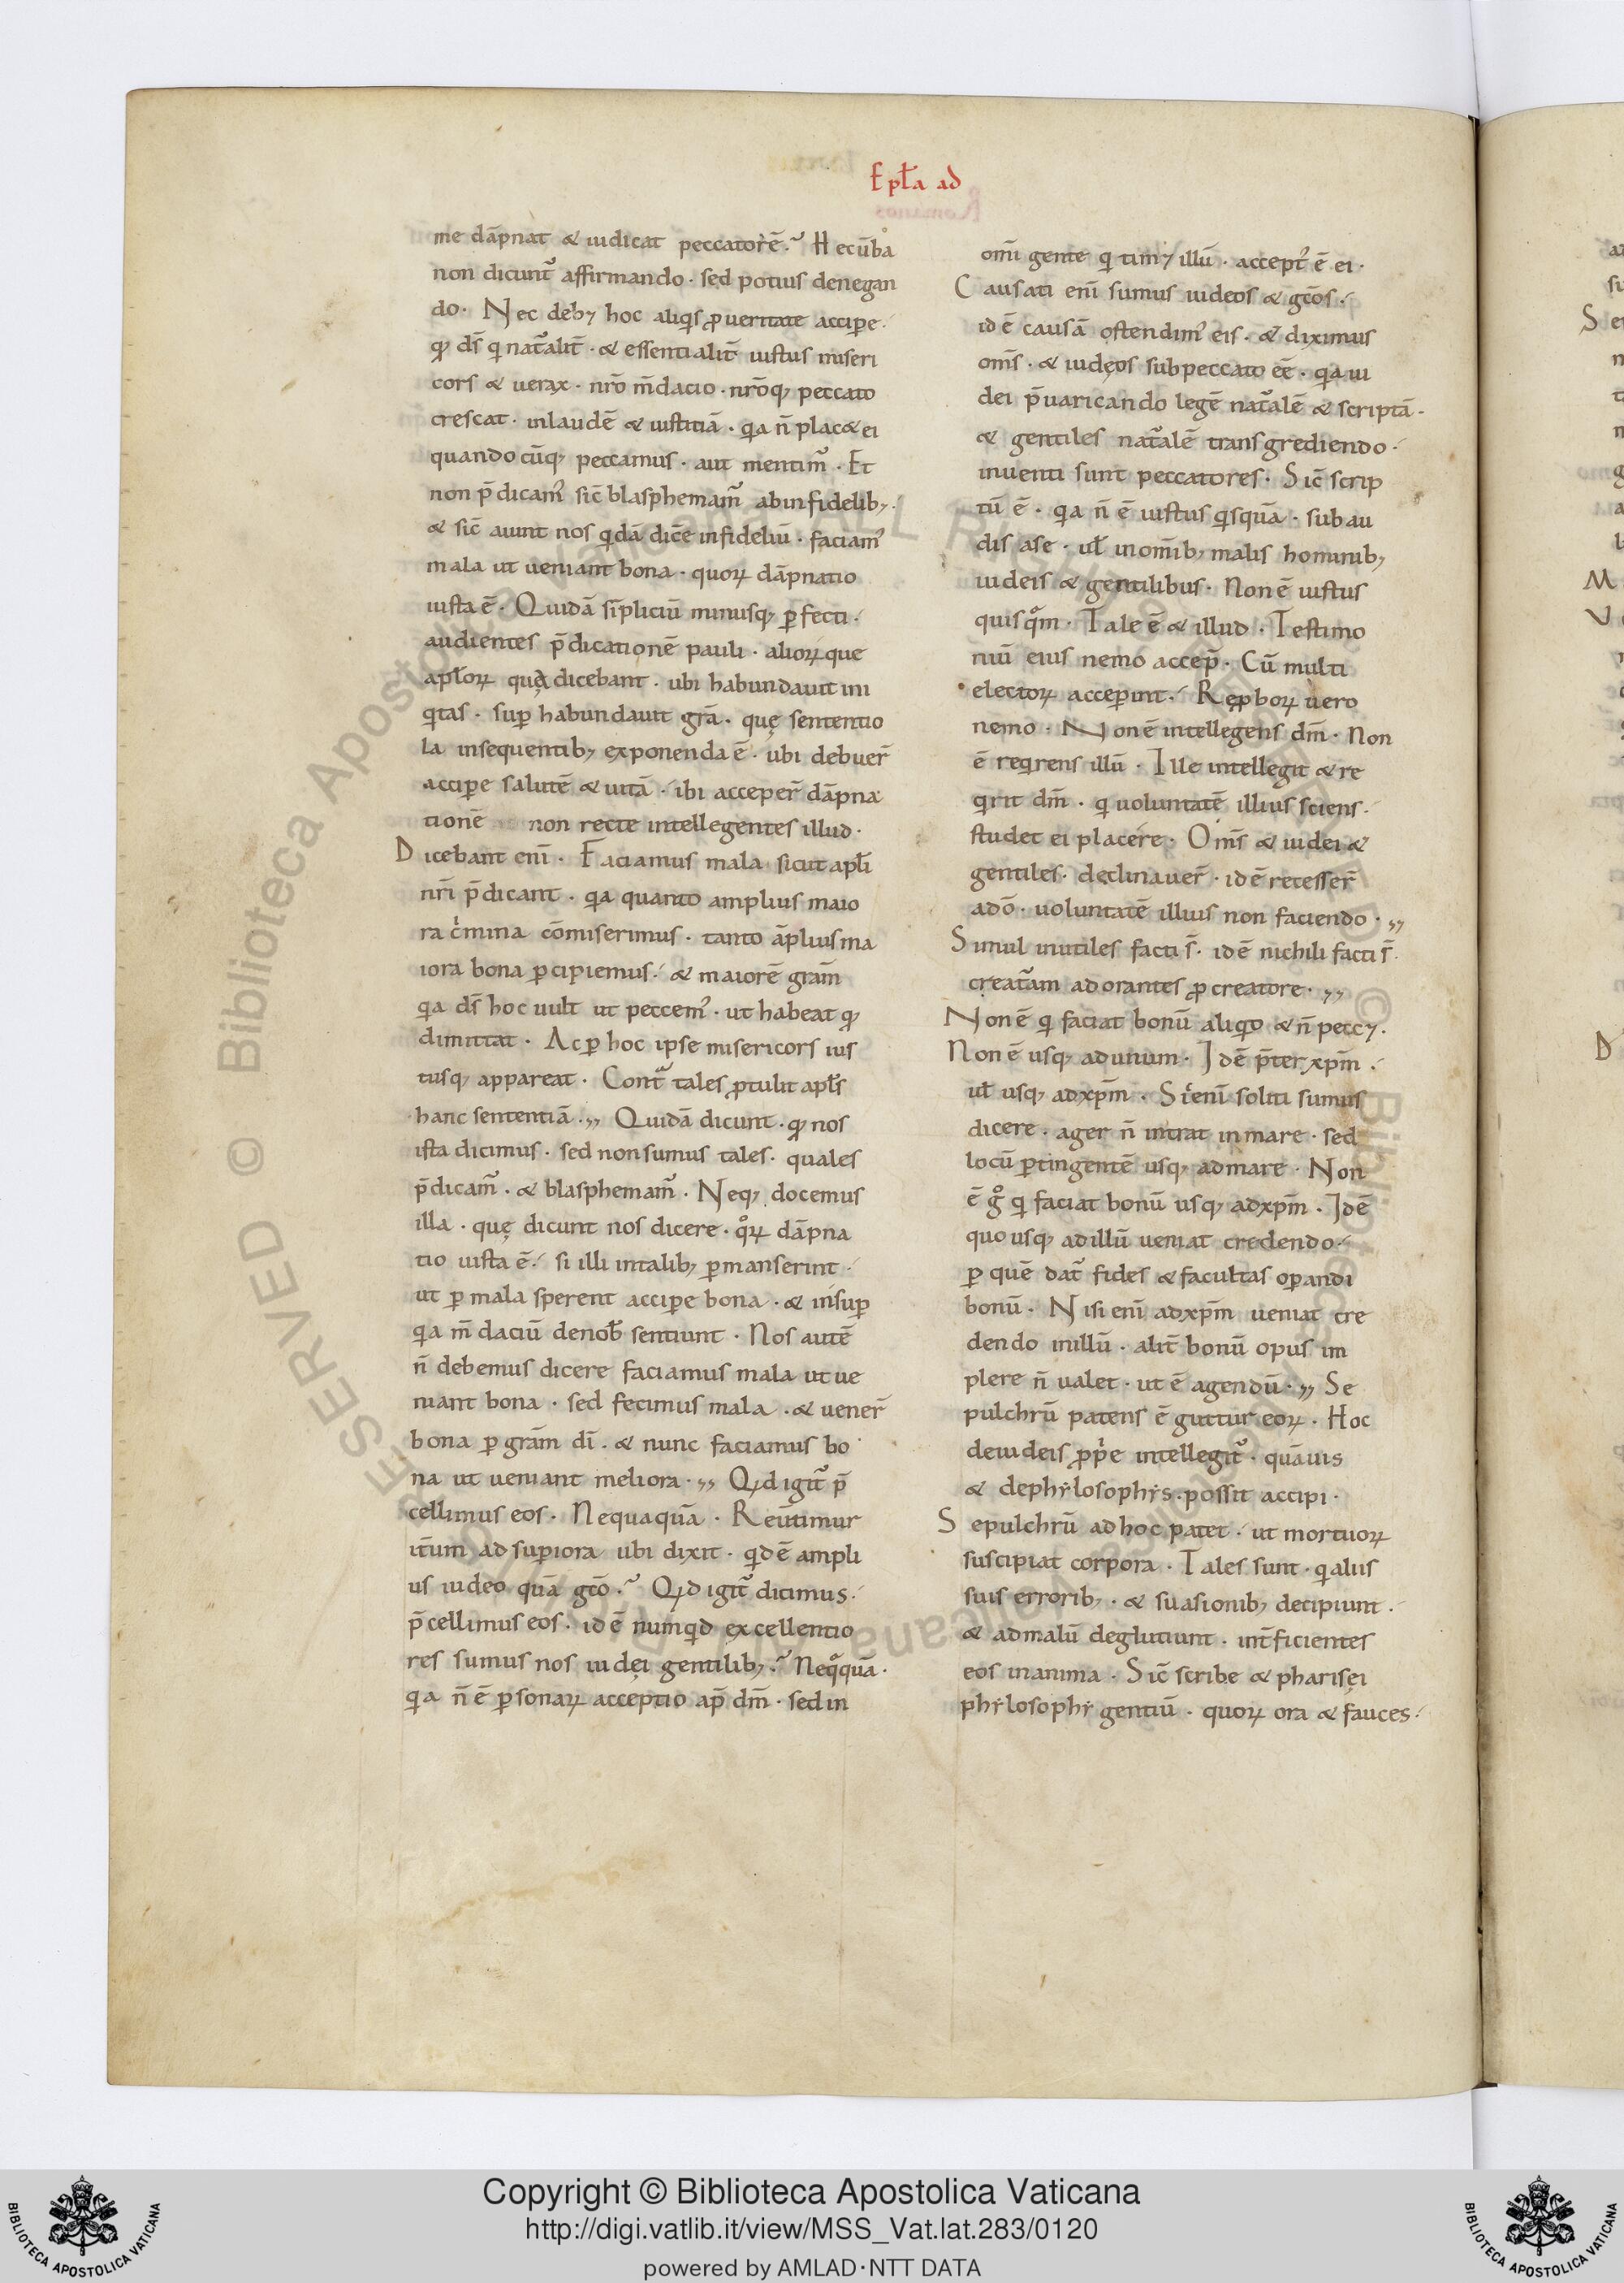 Epľa ad
me dāpnat & iudicat peccatorē.᷉ Hecūba
non dicunt᷑ affirmando · sed potius denegan
do · Nec debꝫ hoc aliq̇s ꝓ ueritate accipe ·
qđ d̄s q̇ nat᷑alit̄ · & essentialit̄ iustus miseri
cors & uerax · nr̄o m̄dacio · nr̄oq; peccato
crescat · inlaudē & iustitiā · q̇a n̄ plac& ei
quandocūq; peccamus · aut mentim᷑ · Et
non p̄dicam᷒ sic̄ blasphemam᷑ abinfidelibꝫ ·
& sic̄ aiunt nos q̇dā dic̄e infideliū · faciam᷒
mala ut ueniant bona · quoꝝ dāpnatio
iusta ē · Quidā sīpliciū minusq; ꝑfecti ·
audientes p̄dicationē pauli · alioꝝque
apľoꝝ quę dicebant · ubi habundauit ini
q̇tas · suꝑ habundauit gr̄a · quę sententio
la insequentibꝫ exponenda ē · ubi debuer̄
acciꝑe salutē & uitā · ibi acceper̄ dāpna
tionē non recte intellegentes illud ·
Dicebant enī · Faciamus mala sicut apľi
nr̄i p̄dicant · q̇a quanto amplius maio
ra c̓mina cōmiserimus · tanto āplius ma
iora bona ꝑcipiemus · & maiorē gram̄
q̇a d̄s hoc uult ut peccem᷒ · ut habeat qđ
dimittat · Ac ꝑ hoc ipse misericors ius
tusq; appareat · Cont᷑ tales ꝓtulit apľs
hanc sententiā · ,, Quidā dicunt · qđ nos
ista dicimus · sed non sumus tales · quales
p̄dicam᷑ · & blasphemam᷑ · Neq; docemus
illa · quę dicunt nos dicere · qͦꝝ dāpna
tio iusta ē · si illi intalibꝫ ꝑmanserint ·
ut ꝑ mala sperent acciꝑe bona · & insuꝑ
q̇a m̄daciū denob̄ sentiunt · Nos autē
n̄ debemus dicere faciamus mala ut ue
niant bona · sed fecimus mala · & uener̄
bona ꝑ gram̄ dī · & nunc faciamus bo
na ut ueniant meliora · ,, Qđ igit᷑ p̄
cellimus eos · Nequaquā · Reūtimur
it̄um ad suꝑiora ubi dixit · q̇d ē ampli
us iudeo quā gc̄o .᷉ Qđ igit᷑ dicimus ·
p̄cellimus eos · id ē numq̇d excellentio
res sumus nos iudęi gentilibꝫ .᷉ Neqͣquā ·
q̇a n̄ ē ꝑsonaꝝ acceptio ap̄ dm̄ · sed in
omī gente q̇ timꝫ illū · accept᷒ ē ei ·
Causati enī sumus iudeos & gc̄os ·
id ē causā ostendim᷒ eis · & diximus
om̄s · & iudęos sub peccato eē · q̇a iu
dei p̄uaricando legē nat᷑alē & scriptā ·
& gentiles nat᷑alē transgrediendo ·
inuenti sunt peccatores · Sic̄ scrip
tū ē · q̇a n̄ ē iustus q̇squā · subau
dis a se · uł in om̄ibꝫ malis hominibꝫ
iudeis & gentilibus · Non ē iustus
quisqͣm · Tale ē & illud · Testimo
niū eius nemo accep̄ · Cū multi
electoꝝ acceꝑint · Ręꝓboꝝ uero
nemo · Non ē intellegens dm̄ · Non
ē req̇rens illū · Ille intellegit & re
q̇rit dm̄ · q̇ uoluntatē illius sciens ·
studet ei placere · Om̄s & iudei &
gentiles · declinauer̄ · id ē recesser̄
adō · uoluntatē illius non faciendo · ,,
Simul inutiles facti s̄ · id ē nichili facti s̄ ·
creat᷑am adorantes ꝓ creatore · ,,
Non ē q̇ faciat bonū aliq̇d & n̄ peccꝫ ·
Non ē usq; ad unum · Id ē p̄ter xpm̄ ·
uł usq; adxpm̄ · Sic̓ enī soliti sumus
dicere · ager n̄ intrat in mare · sed
locū ꝑtingentē usq; ad mare · Non
ē gͦ q̇ faciat bonū usq; adxpm̄ · Id ē
quousq; ad illū ueniat credendo ·
ꝑ quē dat᷑ fides & facultas oꝑandi
bonū · Nisi enī adxpm̄ ueniat cre
dendo inillū · alit̄ bonū opus im
plere n̄ ualet · ut ē agendū · ,, Se
pulchrū patens ē guttur eoꝝ · Hoc
deiudeis ꝓp̓e intellegit᷑ · quāuis
& dephẏlosophẏs · possit accipi ·
Sepulchrū ad hoc patet · ut mortuoꝝ
suscipiat corpora · Tales sunt · q̇ alus
suis erroribꝫ · & suasionibꝫ decipiunt ·
& admalū deglutiunt · int̄ficientes
eos inanima · Sic̄ scribe & pharisei
phẏlosophẏ gentiū · quoꝝ ora & fauces ·
Copyright © Biblioteca Apostolica Vaticana
http://digi.vatlib.it/view/MSS_Vat.lat.283/0120
powered by AMLAD·NTT DATA
BIBLIOTECA APOSTOLICA VATICANA
BIBLIOTECA APOSTOLICA VATICANA